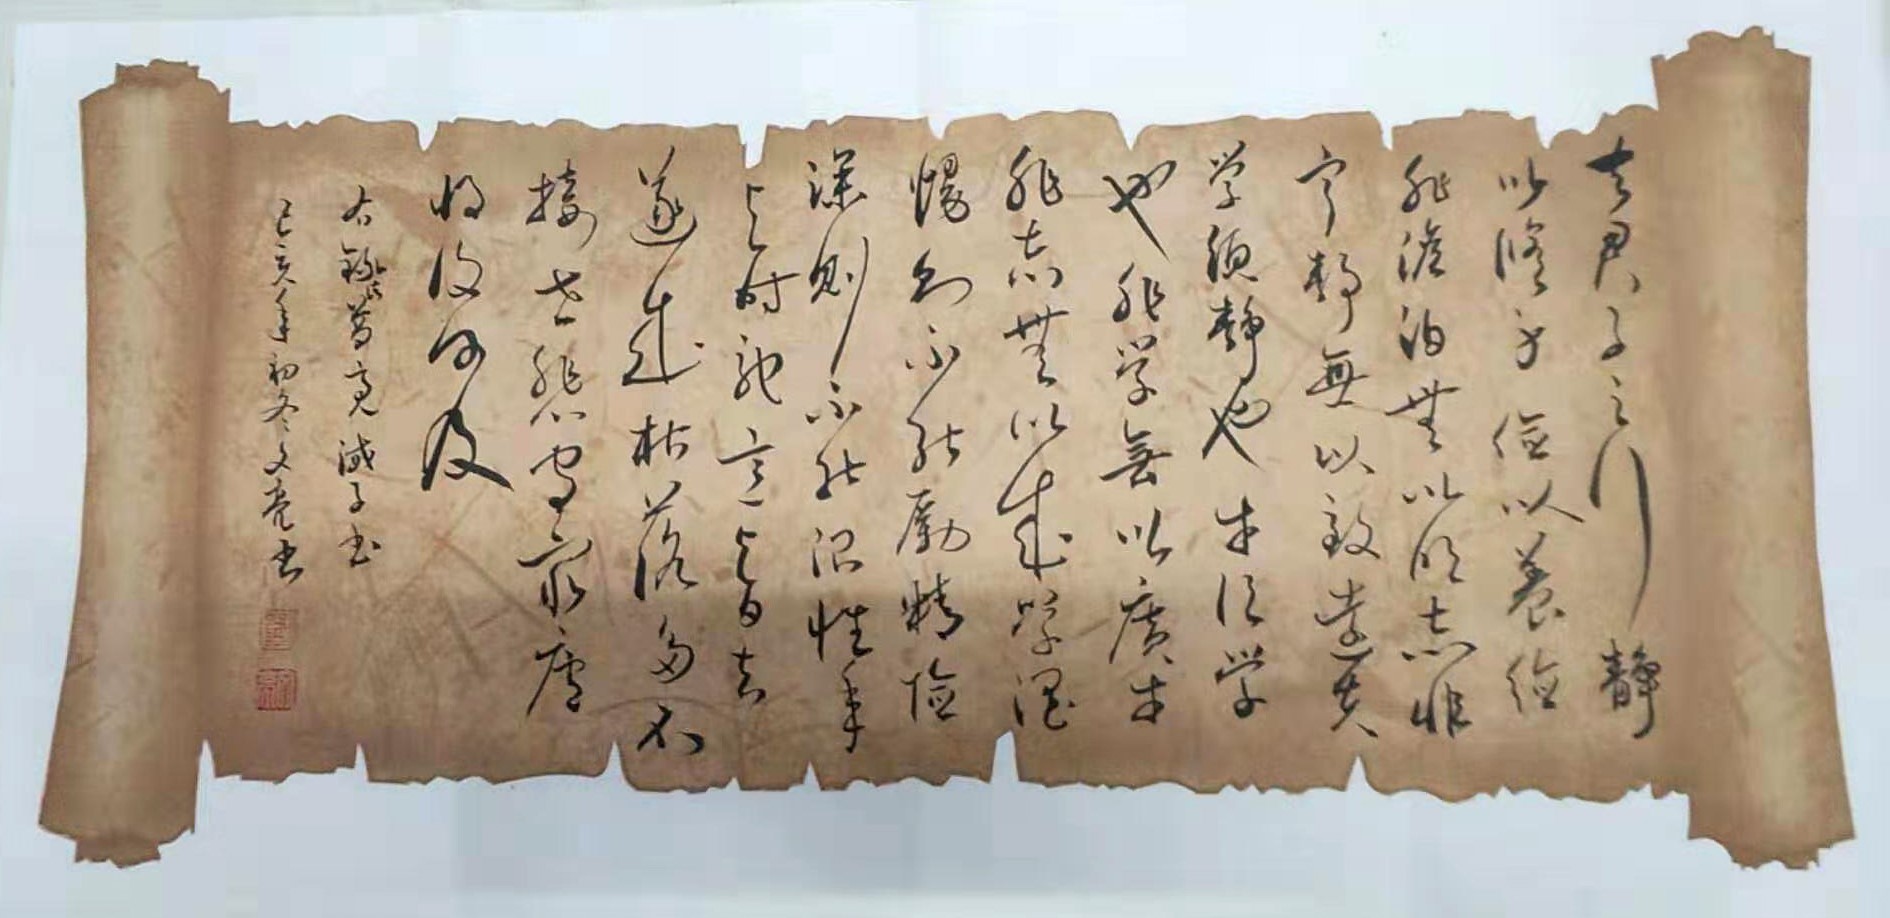 夫君子之行靜
以修身俭以养德
非澹泊無以明志非
宁静無以致遠夫
学须静也才须学
也非学無以廣才
非志無以成学淫
慢则不能勵精险
躁则不能治性年
与时驰意与日去
遂成枯落多不
接世悲守窮廬
将復何及
右錄诸葛亮诫子书
己亥年初冬文亮书